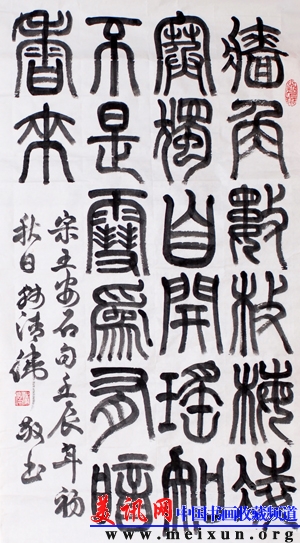 牆角數枝梅凌
寒獨自開瑤知
不是雪為有暗
香來
宋王安石句壬辰年初
秋日 敬書
美讯网 中国书画收藏频道
www.meixun.org